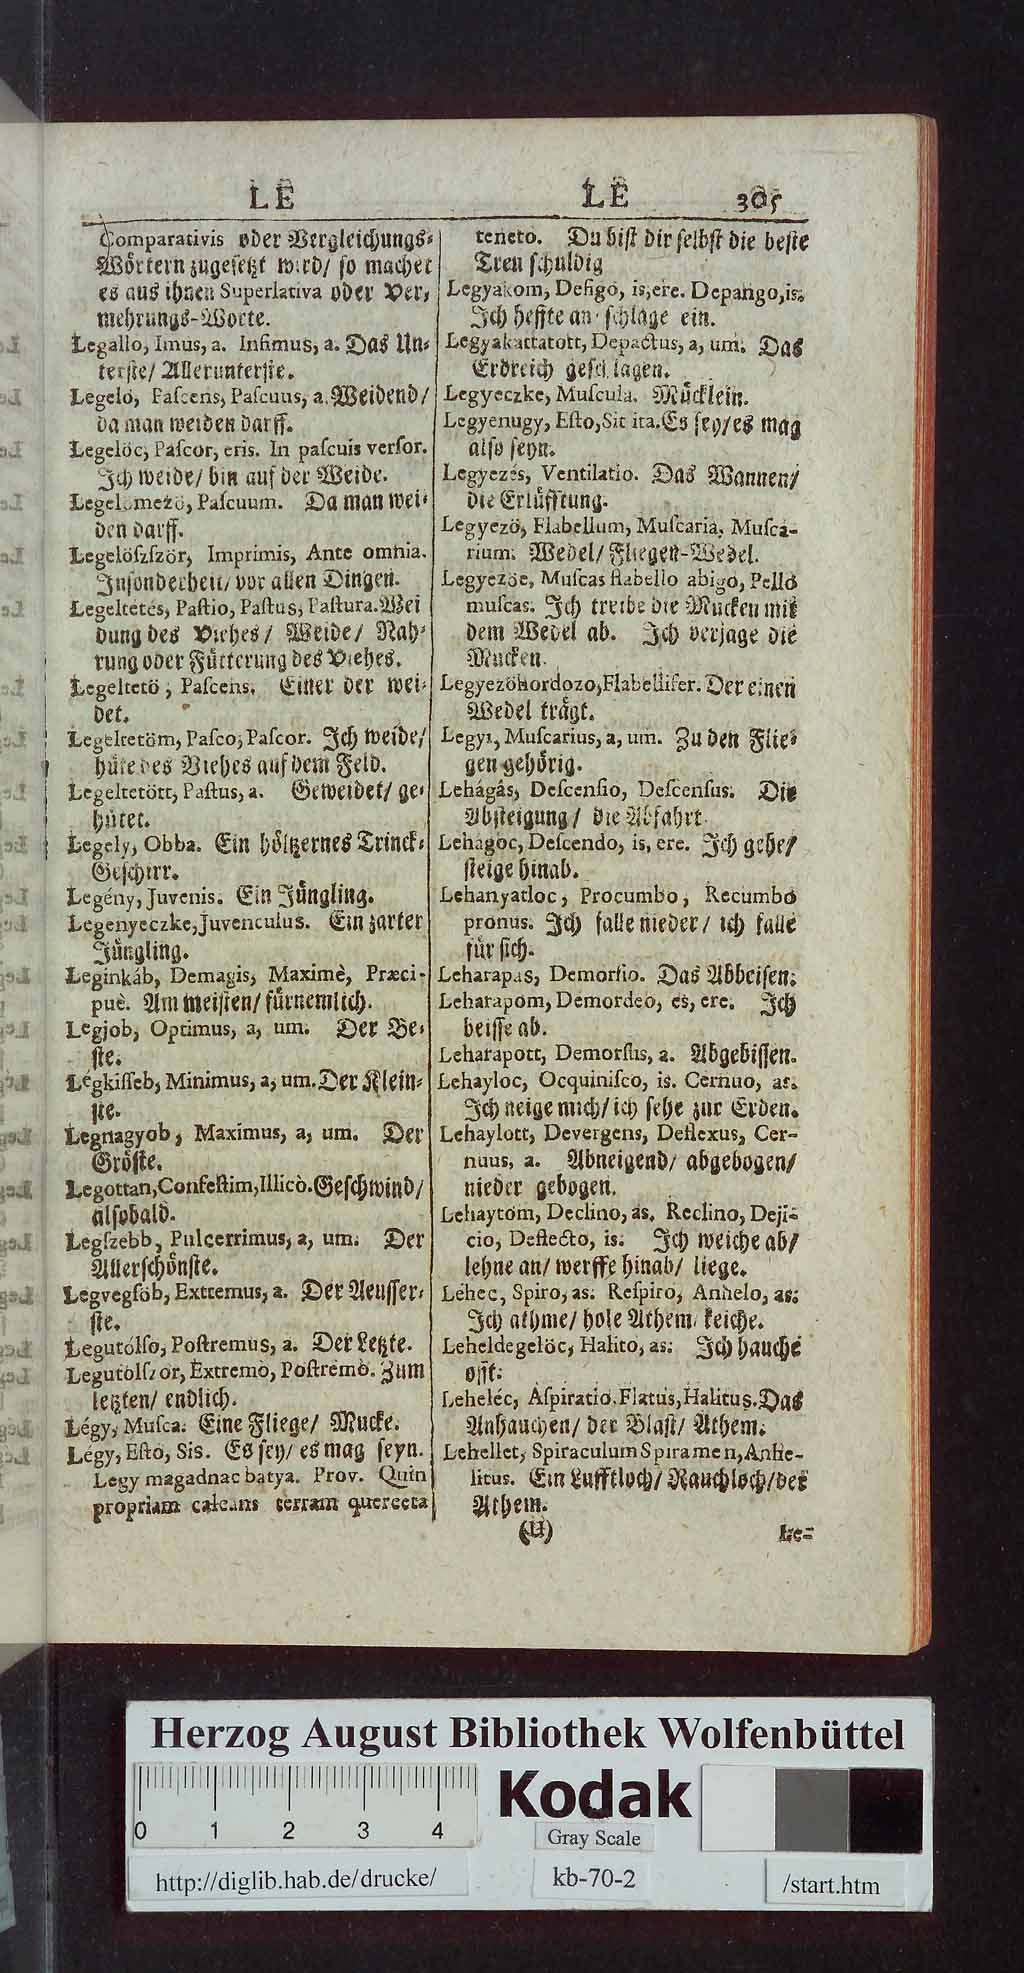 LE
LE 305
Comparativis oder Vergleichungs-
Wörtern zugesetzt wird/ so machet
es aus ihnen Superlativa oder Ver-
mehrungs-Worte.
Legallo, Imus, a. Infimus, a. Das Un-
terste/ Allerunterste.
Legelö, Pascens, Pascuus, a. Weidend/
da man weiden darff.
Legelöc, Pascor, eris. In pascuis versor.
Ich weide/ bin auf der Weide.
Legelömezö, Pascuum. Da man wei-
den darff.
Legelöszször, Imprimis, Ante omnia.
Insonderheit/ vor allen Dingen.
Legeltetés, Pastio, Pastus, Pastura. Wei
dung des Viehes/ Weide/ Nah-
rung oder Fütterung des Viehes.
Legeltetö, Pascens. Einer der wei-
det.
Legeltetöm, Pasco, Pascor. Ich weide/
hüte des Viehes auf dem Feld.
Legeltetött, Pastus, a. Geweidet/ ge-
hütet.
Legely, Obba. Ein höltzernes Trinck-
Geschirr.
Legény, Juvenis. Ein Jüngling.
Legenyeczke, Juvenculus. Ein zarter
Jüngling.
Leginkáb, Demagis, Maximè, Præci-
puè. Am meisten/ fürnemlich.
Legjob, Optimus, a, um. Der Be-
ste.
Legkisseb, Minimus, a, um. Der Klein-
ste.
Legnagyob, Maximus, a, um. Der
Gröste.
Legottan, Confestim, Illicò. Geschwind/
alsobald.
Legszebb, Pulcerrimus, a, um. Der
Allerschönste.
Legvegsöb, Extremus, a. Der Aeusser-
ste.
Legutólso, Postremus, a. Der Letzte.
Legutólszor, Extremò, Postremò. Zum
letzten/ endlich.
Légy, Musca. Eine Fliege/ Mucke.
Légy, Esto, Sis. Es sey/ es mag seyn.
Legy magadnac batya. Prov. Quin
propriam calcans terram querceta
teneto. Du bist dir selbst die beste
Treu schuldig
Legyakom, Defigo, is, ere. Depango, is.
Ich heffte an. schlage ein.
Legyakattatott, Depactus, a, um. Das
Erdreich geschlagen.
Legyeczke, Muscula. Mücklein.
Legyenugy, Esto, Sit ita. Es sey/ es mag
also seyn.
Legyezés, Ventilatio. Das Wannen/
die Erlüfftung.
Legyezö, Flabellum, Muscaria, Musca-
rium. Wedel/ Fliegen-Wedel.
Legyezöe, Muscas flabello abigo, Pello
muscas. Ich treibe die Mucken mit
dem Wedel ab. Ich verjage die
Mucken.
Legyezöhordozo, Flabellifer. Der einen
Wedel trägt.
Legyi, Muscarius, a, um. Zu den Flie-
gen gehörig.
Lehágás, Descensio, Descensus. Die
Absteigung/ die Abfahrt.
Lehágoc, Descendo, is, ere. Ich gehe/
steige hinab.
Lehanyatloc, Procumbo, Recumbo
pronus. Ich falle nieder/ ich falle
für sich.
Leharapas, Demorsio. Das Abbeisen.
Leharapom, Demordeo, es, ere. Ich
beisse ab.
Leharapott, Demorsus, a. Abgebissen.
Lehayloc, Ocquinisco, is. Cernuo, as.
Ich neige mich/ ich sehe zur Erden.
Lehaylott, Devergens, Deflexus, Cer-
nuus, a. Abneigend/ abgebogen/
nieder gebogen.
Lehaytom, Declino, as. Reclino, Deji-
cio, Deflecto, is. Ich weiche ab/
lehne an/ werffe hinab/ liege.
Léhec, Spiro, as. Respiro, Anhelo, as.
Ich athme/ hole Athem/ keiche.
Leheldegelöc, Halito, as. Ich hauche
offt.
Leheléc, Aspiratio. Flatus, Halitus. Das
Anhauchen/ der Blast/ Athem.
Lehellet, Spiraculum Spiramen, Anhe-
litus. Ein Lufftloch/ Rauchloch/ der
Athem.
(U) Le-
Herzog August Bibliothek Wolfenbüttel
0 1 2 3 4
Kodak
Gray Scale
http://diglib.hab.de/drucke/
kb-70-2
/start.htm